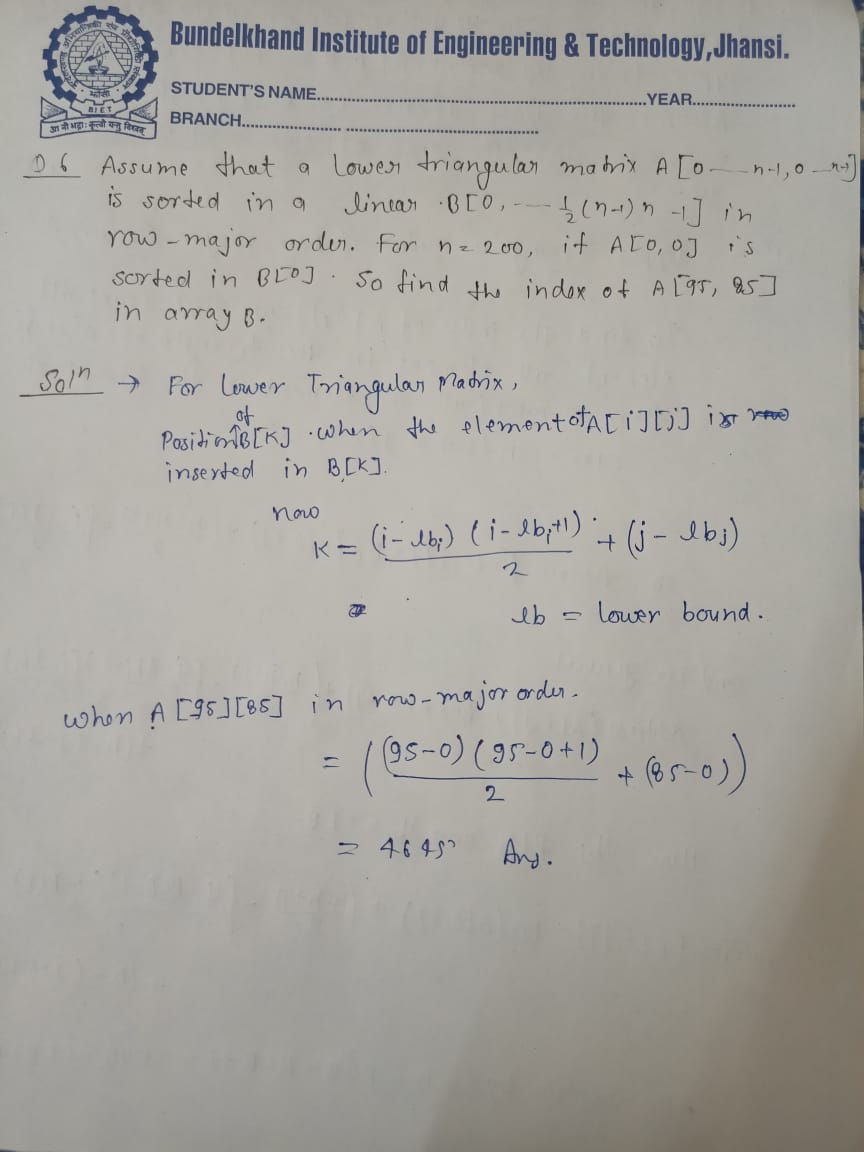 BIET
Bundelkhand Institute of Engineering & Technology,Jhansi.
STUDENT'S NAME..........................................................................................YEAR........................
BRANCH...................... ...........................................
Q.6 Assume that a lower triangular matrix A [0 — n-1, 0 — n-1]
is sorted in a linear B[0, --- 1/2 (n-1) n -1] in
row-major order. For n = 200, if A[0,0] is
sorted in B[0]. So find the index of A [95, 85]
in array B.
Soln → For Lower Triangular Matrix,
Position of B[K] . when the element of A[i][j] is
inserted in B[K].
now
K = (i- lbi) (i- lbi+1) / 2 + (j - lbj)
lb = lower bound.
when A [95][85] in row-major order.
= ((95-0) (95-0+1) / 2 + (85-0))
= 4645 Ans.